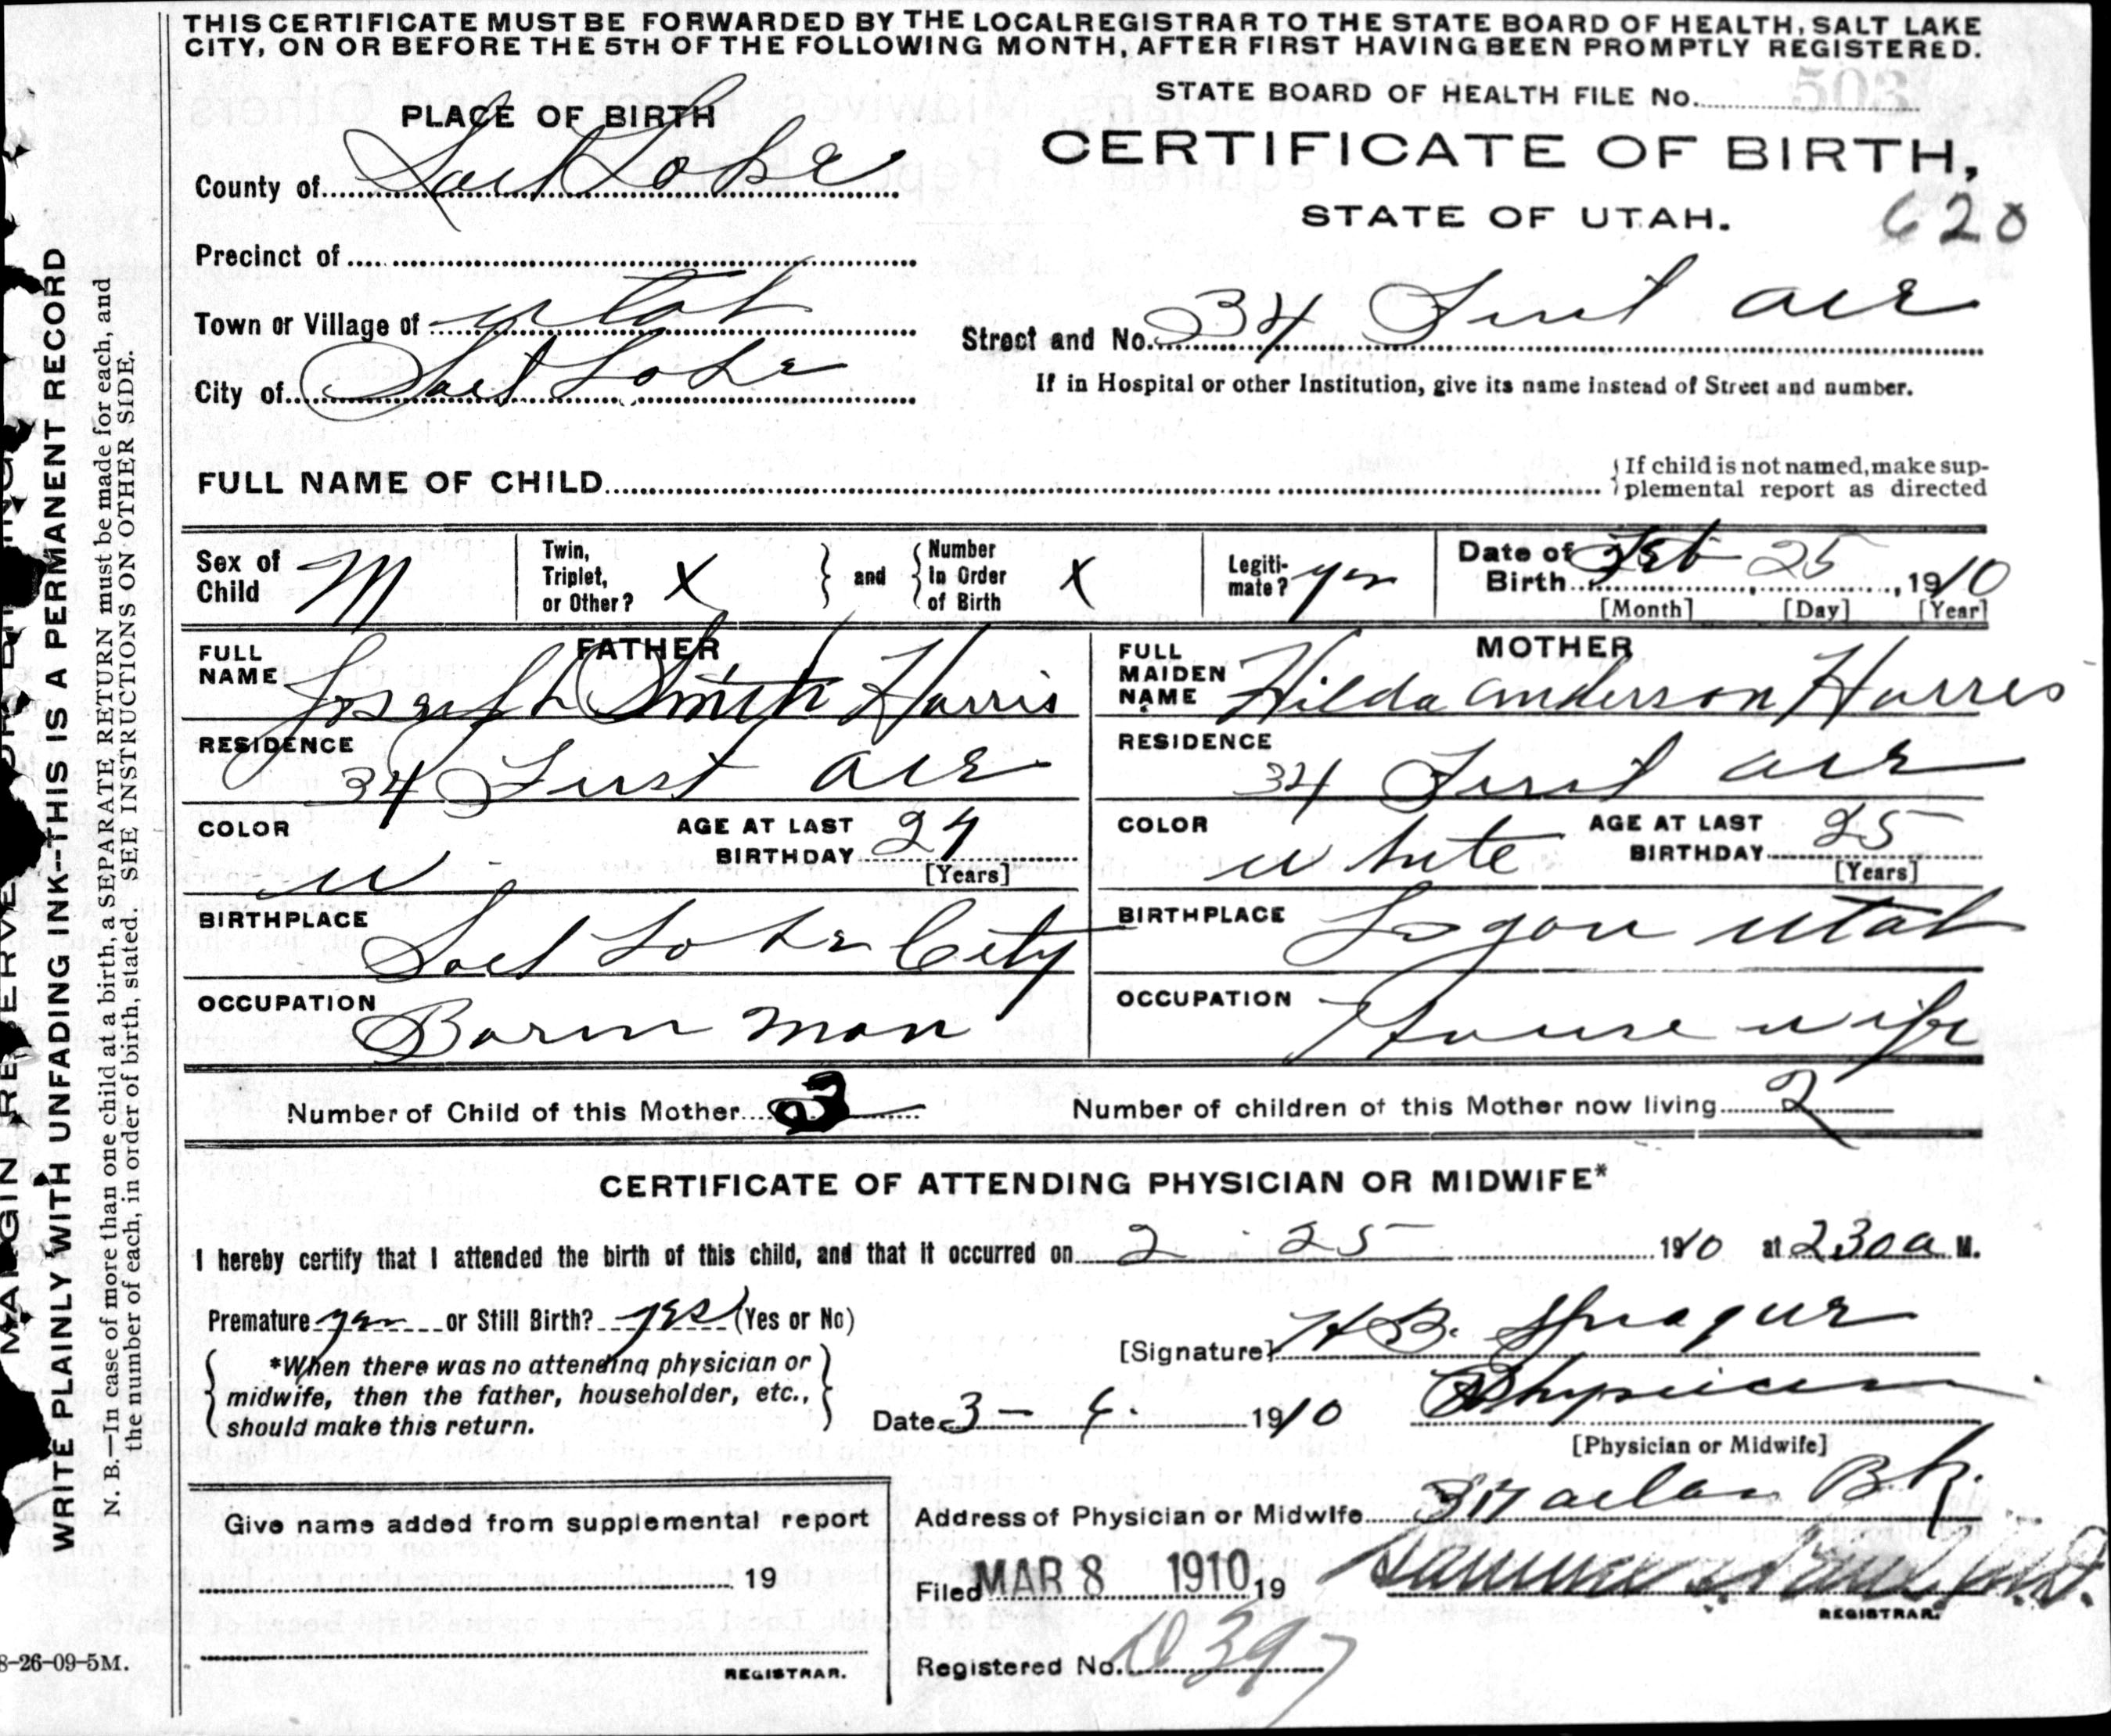 THIS CERTIFICATE MUST BE FORWARDED BY THE LOCAL REGISTRAR TO THE STATE BOARD OF HEALTH, SALT LAKE
CITY, ON OR BEFORE THE 5TH OF THE FOLLOWING MONTH, AFTER FIRST HAVING BEEN PROMPTLY REGISTERED.
STATE BOARD OF HEALTH FILE No. 503
PLACE OF BIRTH
CERTIFICATE OF BIRTH,
County of Salt Lake
STATE OF UTAH.
620
Precinct of
Town or Village of Utah
Street and No. 34 First ave
City of Salt Lake
If in Hospital or other Institution, give its name instead of Street and number.
FULL NAME OF CHILD
If child is not named, make sup-
plemental report as directed
Sex of Child M
Twin, Triplet, or Other? X
and
Number In Order of Birth X
Legiti-mate? yes
Date of Birth Feb 25, 1910
[Month] [Day] [Year]
FATHER
FULL NAME Joseph Smith Harris
RESIDENCE 34 First ave
COLOR W
AGE AT LAST BIRTHDAY 24
[Years]
BIRTHPLACE Salt Lake City
OCCUPATION Barn man
MOTHER
FULL MAIDEN NAME Hilda Anderson Harris
RESIDENCE 34 First ave
COLOR white
AGE AT LAST BIRTHDAY 25
[Years]
BIRTHPLACE Logan Utah
OCCUPATION Housewife
Number of Child of this Mother 3
Number of children of this Mother now living 2
CERTIFICATE OF ATTENDING PHYSICIAN OR MIDWIFE*
I hereby certify that I attended the birth of this child, and that it occurred on 2 - 25 1910 at 230 a M.
Premature yes or Still Birth? yes (Yes or No)
[Signature] H B. Sprague
*When there was no attending physician or
midwife, then the father, householder, etc.,
should make this return.
Date 3 - 4. 1910
Physician
[Physician or Midwife]
Give name added from supplemental report
19
REGISTRAR.
Address of Physician or Midwife 317 Atlas Bk.
Filed MAR 8 1910 19
REGISTRAR.
Registered No. D 397
8-26-09-5M.
WRITE PLAINLY WITH UNFADING INK--THIS IS A PERMANENT RECORD
N. B.—In case of more than one child at a birth, a SEPARATE RETURN must be made for each, and
the number of each, in order of birth, stated. SEE INSTRUCTIONS ON OTHER SIDE.
MARGIN RESERVED